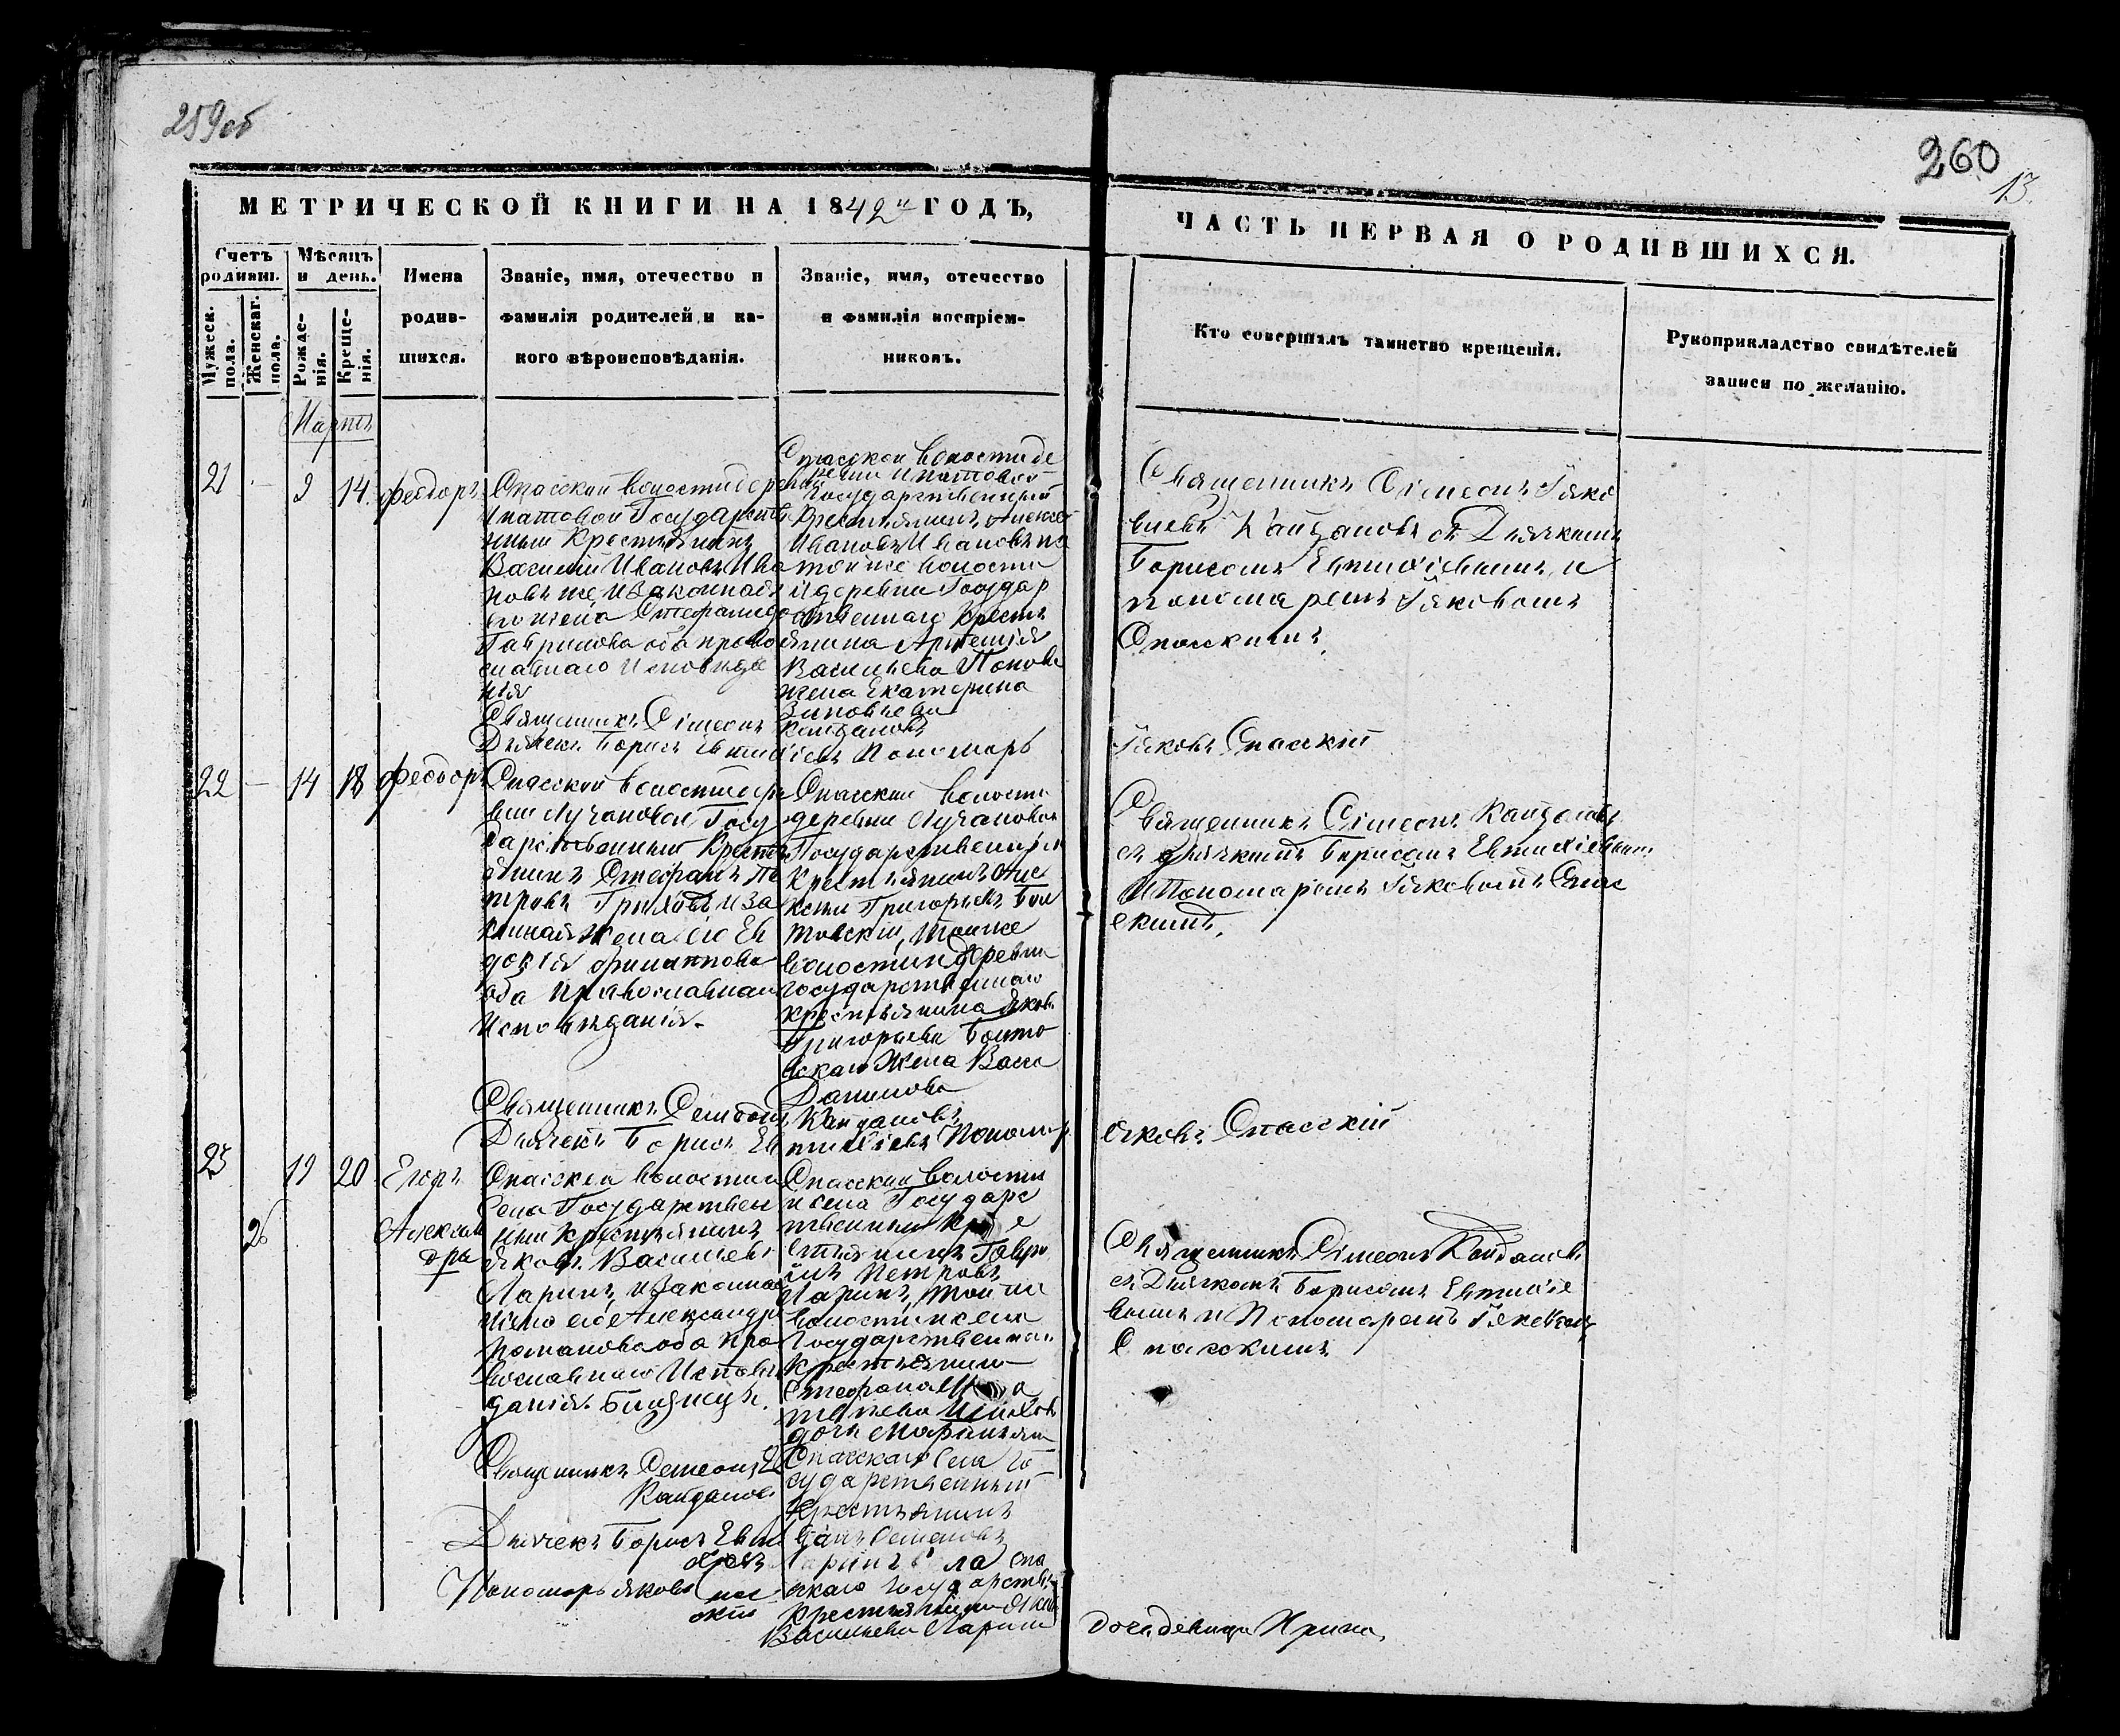 259об
260
13.
МЕТРИЧЕСКОЙ КНИГИ НА 1842й ГОДЪ,
ЧАСТЬ ПЕРВАЯ О РОДИВШИХСЯ.
Счетъ родивш.
Мужеск. пола.
Женскаг. пола.
Мѣсяцъ и день.
Рожде-нія.
Креще-нія.
Имена родив-шихся.
Званіе, имя, отечество и
фамилія родителей и ка-
кого вѣроисповѣданія.
Званіе, имя, отечество
и фамилія воспріем-
никовъ.
Кто совершалъ таинство крещенія.
Рукоприкладство свидѣтелей
записи по желанію.
Мартъ
21 - 2 14 Феодоръ
Спасской волости деревни
Ипатовой Государстве
нный Крестьянинъ
Василий Ивановъ Ива
новъ же и законная
его жена Стефанида
Гаврилова оба право
славнаго исповѣда
нія
Священникъ Сімеонъ
Дьячекъ Борисъ Евтихіевъ Пономарь
Спасской волости де
ревни Ипатовой
Государственный
Крестьянинъ Алексей
Ивановъ Ивановъ
той же волости
и деревни Государ
ственнаго Кресть
янина Артемія
Васильева Попова
жена Екатерина
Зиновьева
Кайдаловъ
Священникъ Сімеонъ Іяко
влевъ Кайдаловъ съ Дьячкомъ
Борисомъ Евтихіевымъ и
пономаремъ Іяковомъ
Спасскимъ.
Іяковъ Спасскій
22 - 14 18 Феодоръ
Спасской волости дере
вни Лучановой Госу
дарственный Кресть
янинъ Стефанъ Пе
тровъ и за
конная жена его Ев
докія
оба Православнаго
Исповѣданія.
Священникъ
Дьячекъ Борисъ Ев
Спасской волости
деревни Лучановой
Государственный
Крестьянинъ Але
ксей Григорьевъ Бол
товский, той же
волости и деревни
Государственнаго
крестьянина Яков
Григорьева Болто
вскаго Жена Васса
Данилова
Кайдаловъ
тихіевъ Пономарь
Священникъ Сімеонъ Кайдаловъ
съ дьячкомъ Борисомъ Евтихіевымъ
и Пономаремъ Іяковомъ Спас
скимъ.
Яковъ Спасскій
23 19 20 Егоръ
26 Александра
Спасской волости и
Села Государствен
ный Крестьянинъ
Яковъ Васильевъ
Ларинъ и законная
жена его Александра
оба Пра
вославнаго Исповѣ
данія. Близнецы.
Священникъ
Кайдаловъ
Дьячекъ Борисъ Евти
хіевъ
Пономарь Яковъ Спас
скій
Спасской волости
и села Государс
твенный Кре
стьянинъ Гаври
илъ Петровъ
Ларинъ, той же
волости и села
Государственнаго
Крестьянина
Стефана
дочь
Спасскаго Села Го
сударственный
Крестьянинъ
Семеновъ
Ларинъ Села Спа
скаго Государстве
Крестьянина Якова
Васильева Ларина
Священникъ Сімеонъ Кайдаловъ
съ Дьячкомъ Борисомъ Евтихіе
вымъ и Пономаремъ Іяковомъ
Спасскимъ
дочь девица Ирина.